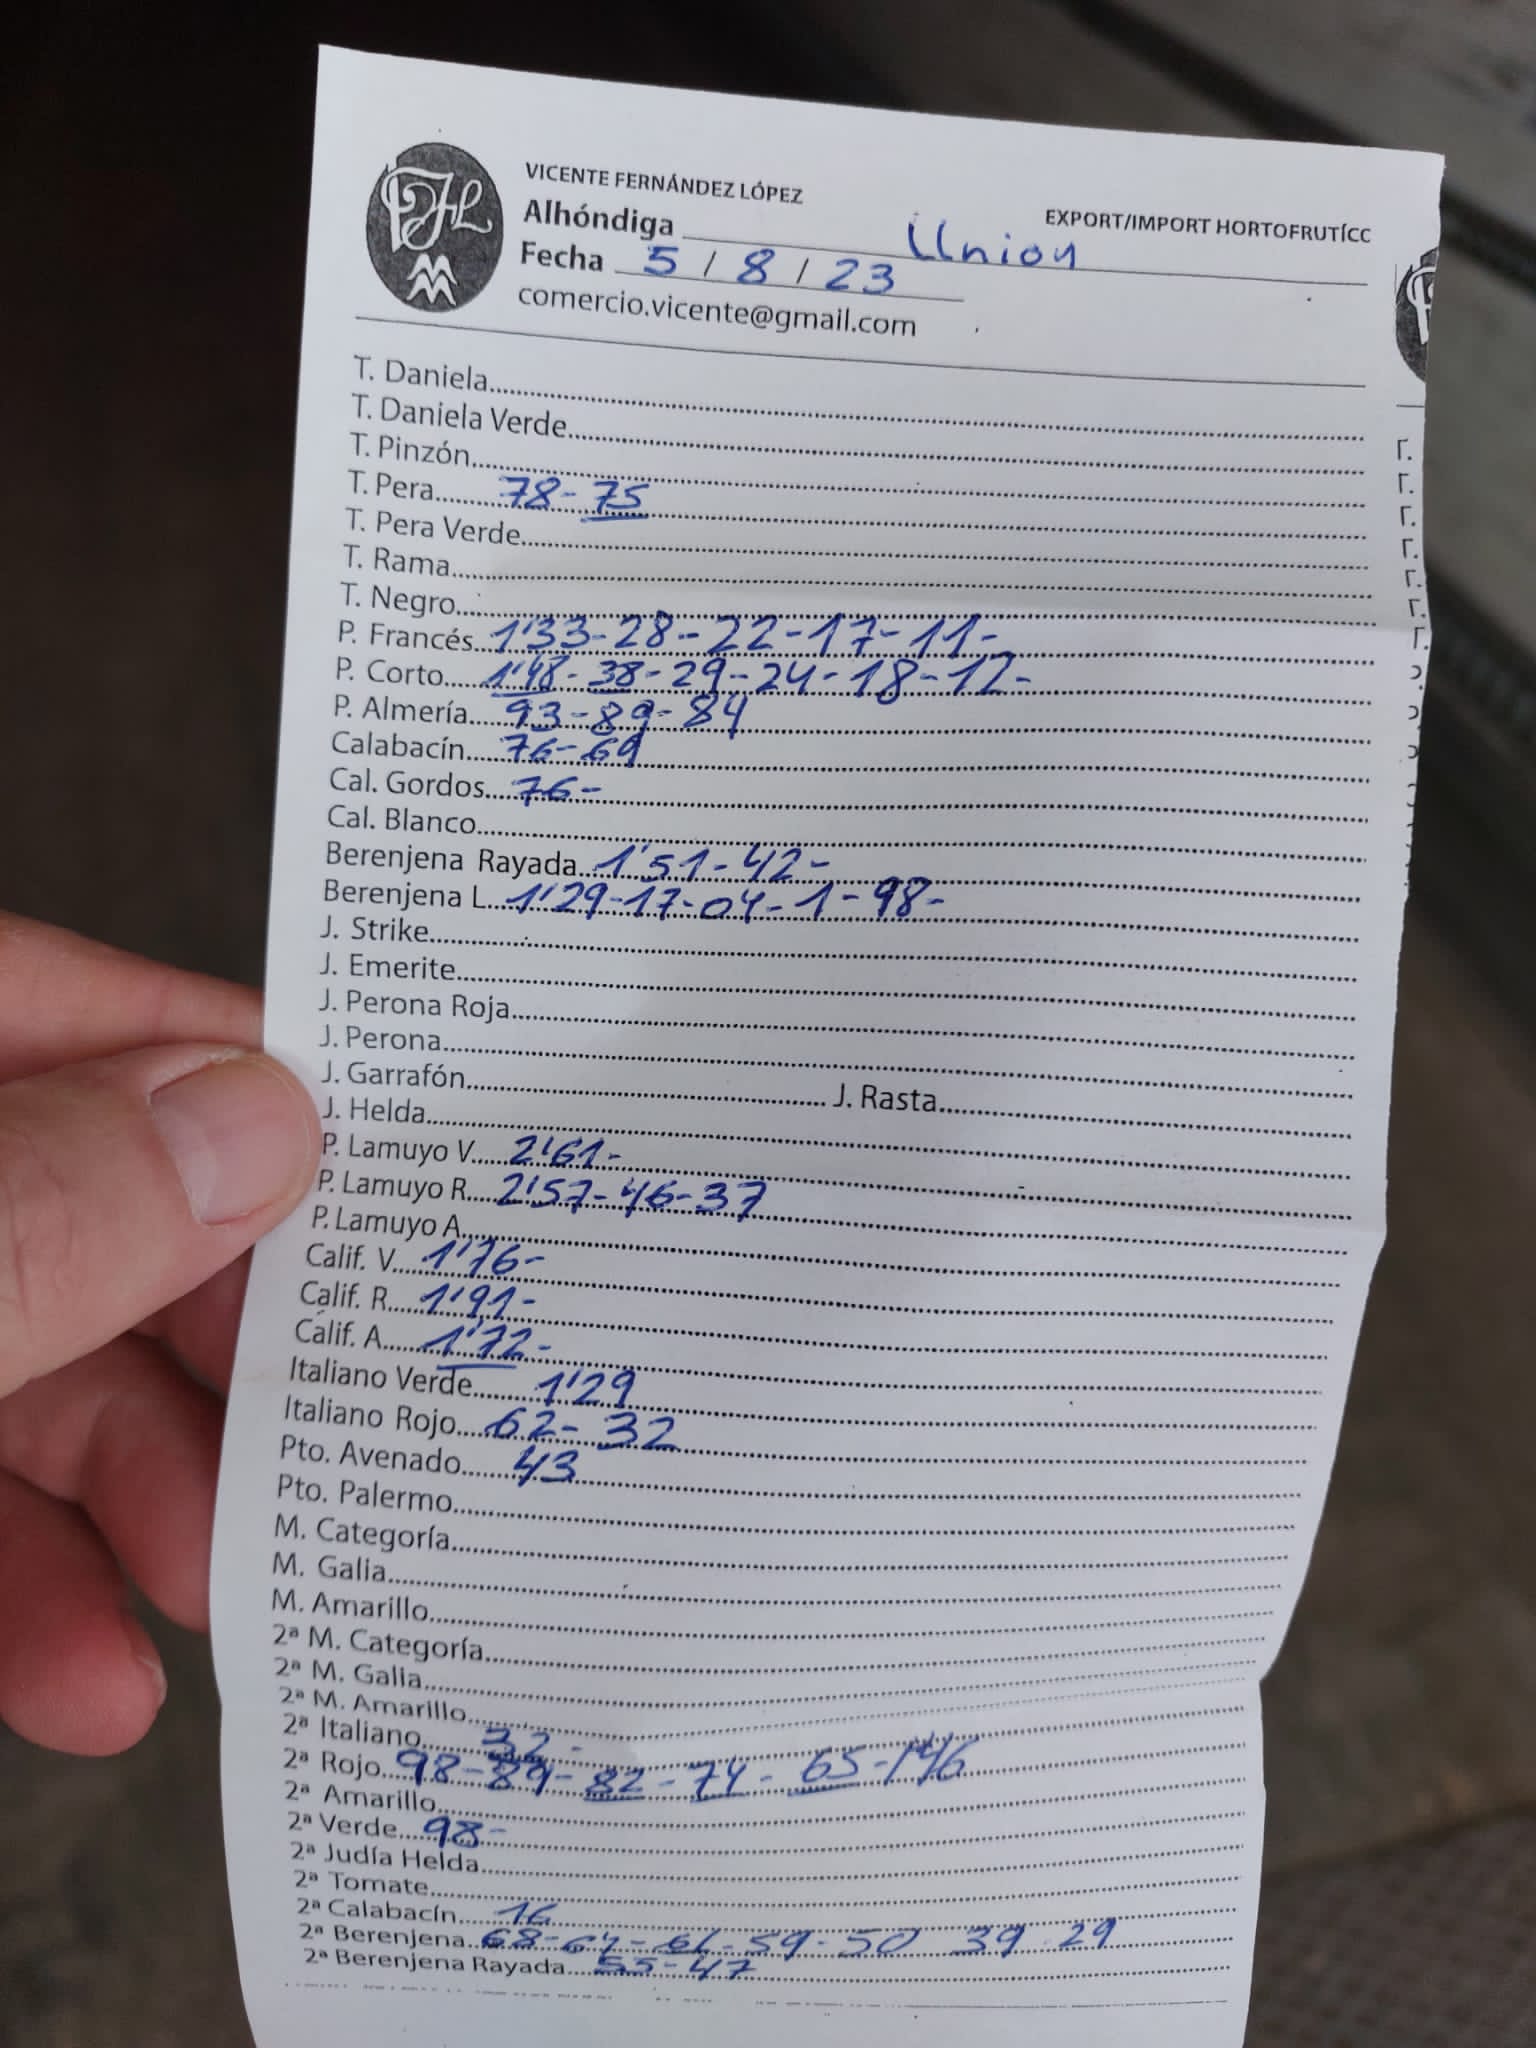 VICENTE FERNÁNDEZ LÓPEZ
EXPORT/IMPORT HORTOFRUTÍCC
Alhóndiga Union
Fecha 5 / 8 / 23
comercio.vicente@gmail.com
T. Daniela
T. Daniela Verde
T. Pinzón
T. Pera 78-75
T. Pera Verde
T. Rama
T. Negro
P. Francés 1'33-28-22-17-11-
P. Corto 1'48-38-29-24-18-12-
P. Almería 93-89-84
Calabacín 76-69
Cal. Gordos 76-
Cal. Blanco
Berenjena Rayada 1'51-42-
Berenjena L 1'29-17-04-1-98-
J. Strike
J. Emerite
J. Perona Roja
J. Perona
J. Garrafón J. Rasta
J. Helda
P. Lamuyo V 2'61-
P. Lamuyo R 2'57-46-37
P. Lamuyo A
Calif. V 1'76-
Calif. R 1'91-
Calif. A 1'72-
Italiano Verde 1'29
Italiano Rojo 62-32
Pto. Avenado 43
Pto. Palermo
M. Categoría
M. Galia
M. Amarillo
2ª M. Categoría
2ª M. Galia
2ª M. Amarillo
2ª Italiano 32-
2ª Rojo 98-89-82-74-65-
2ª Amarillo
2ª Verde 98-
2ª Judía Helda
2ª Tomate
2ª Calabacín 16
2ª Berenjena 68- -59-50 39 29
2ª Berenjena Rayada 55-47